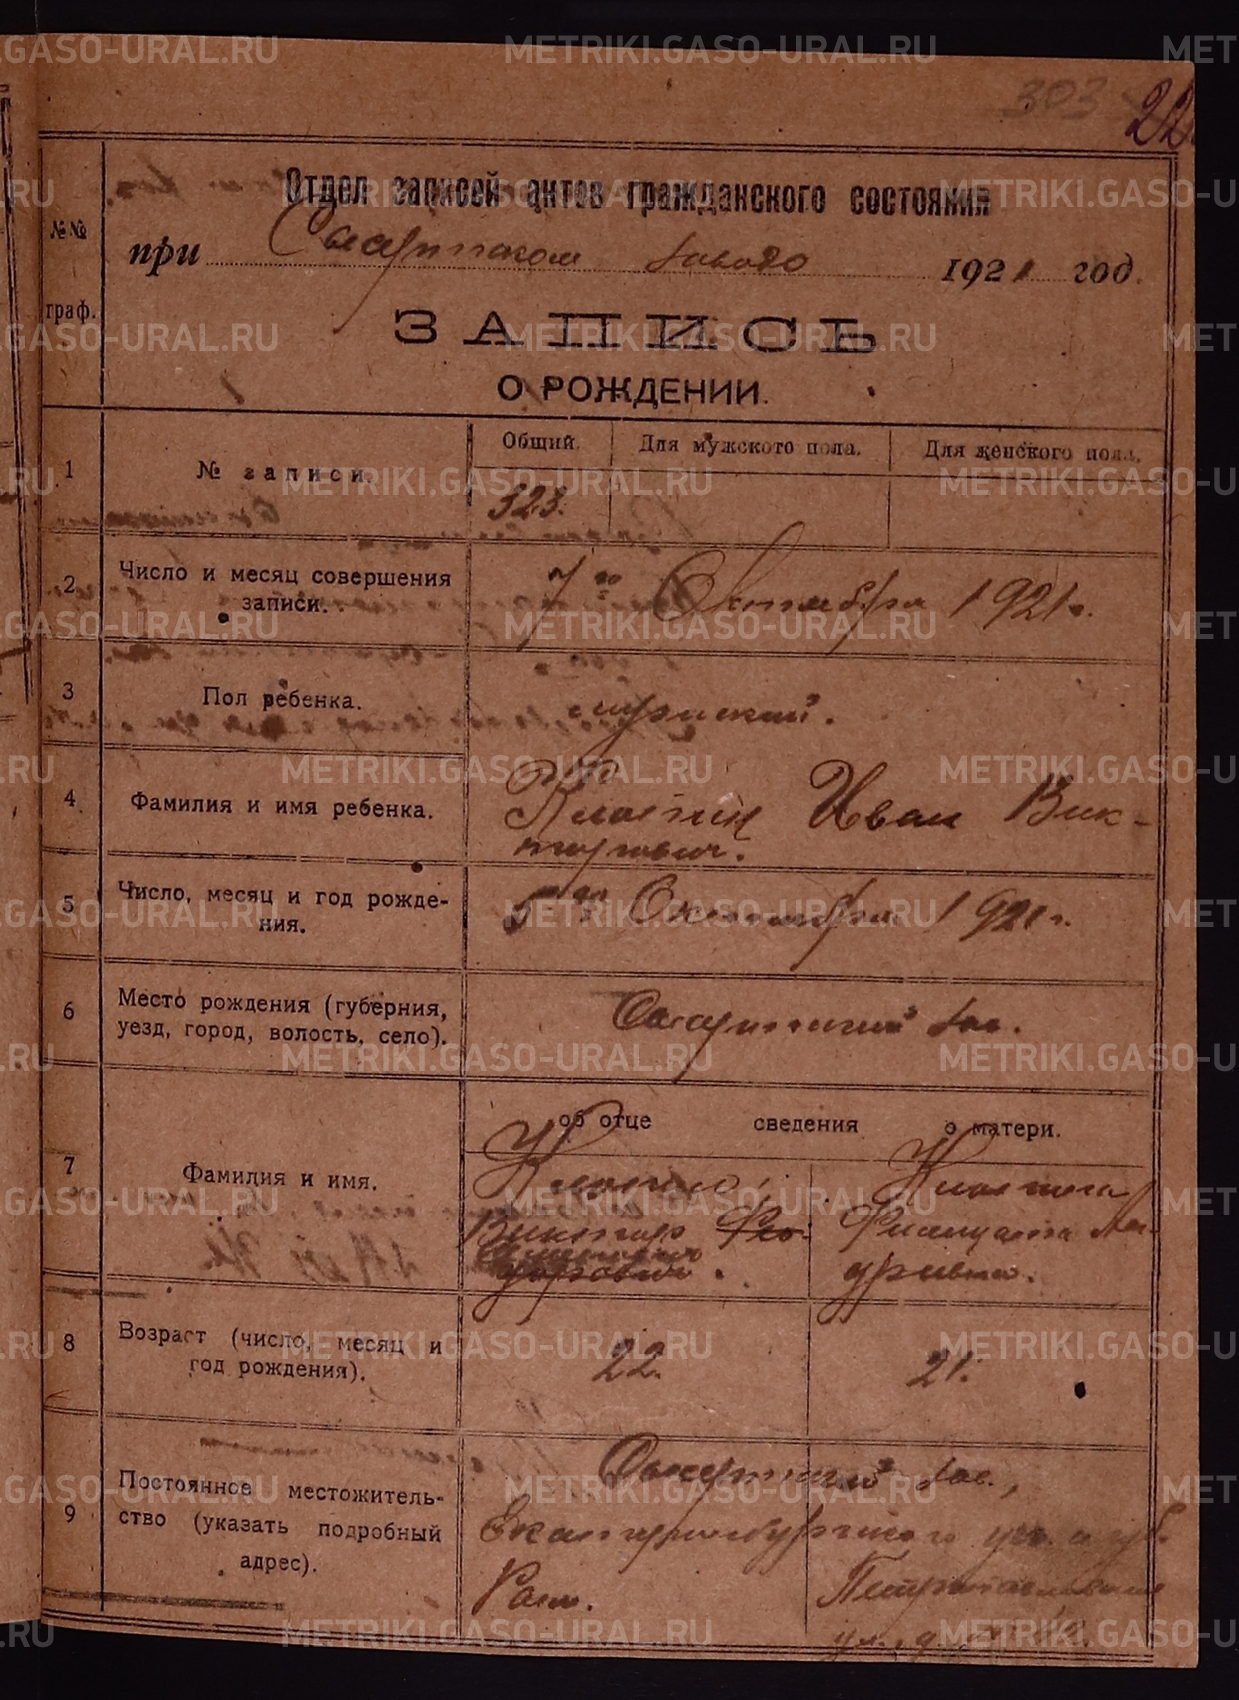 METRIKI.GASO-URAL.RU
303
22
Отдел записей актов гражданского состояния
№№ граф.
при Сысертском заводе 1921 год.
ЗАПИСЬ
О РОЖДЕНИИ.
Общий. Для мужского пола. Для женского пола.
1 № записи.
323.
2 Число и месяц совершения записи. 7го Октября 1921 г.
3 Пол ребенка. мужской.
4 Фамилия и имя ребенка. Иван Вик-
торович.
5 Число, месяц и год рожде-
ния. 5го Октября 1921 г.
6 Место рождения (губерния,
уезд, город, волость, село). Сысертский зав.
об отце сведения о матери.
7 Фамилия и имя.
Виктор Фео-
дорович.
8 Возраст (число, месяц и
год рождения). 22. 21.
9 Постоянное местожитель-
ство (указать подробный
адрес).
Сысертский зав.,
Екатеринбургского уез. и губ.
ул., д. №